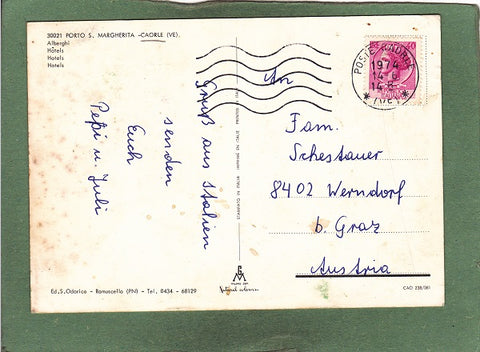 30021 PORTO S. MARGHERITA -CAORLE (VE).
Alberghi
Hôtels
Hotels
Hotels
Gruß aus Italien
senden
Euch
Pepi u. Juli
An
Fam.
Schestauer
8402 Werndorf
b. Graz
Austria
1974
Ed. S. Odorico - Ramuscello (PN) - Tel. 0434 - 68129
CAO 238/081